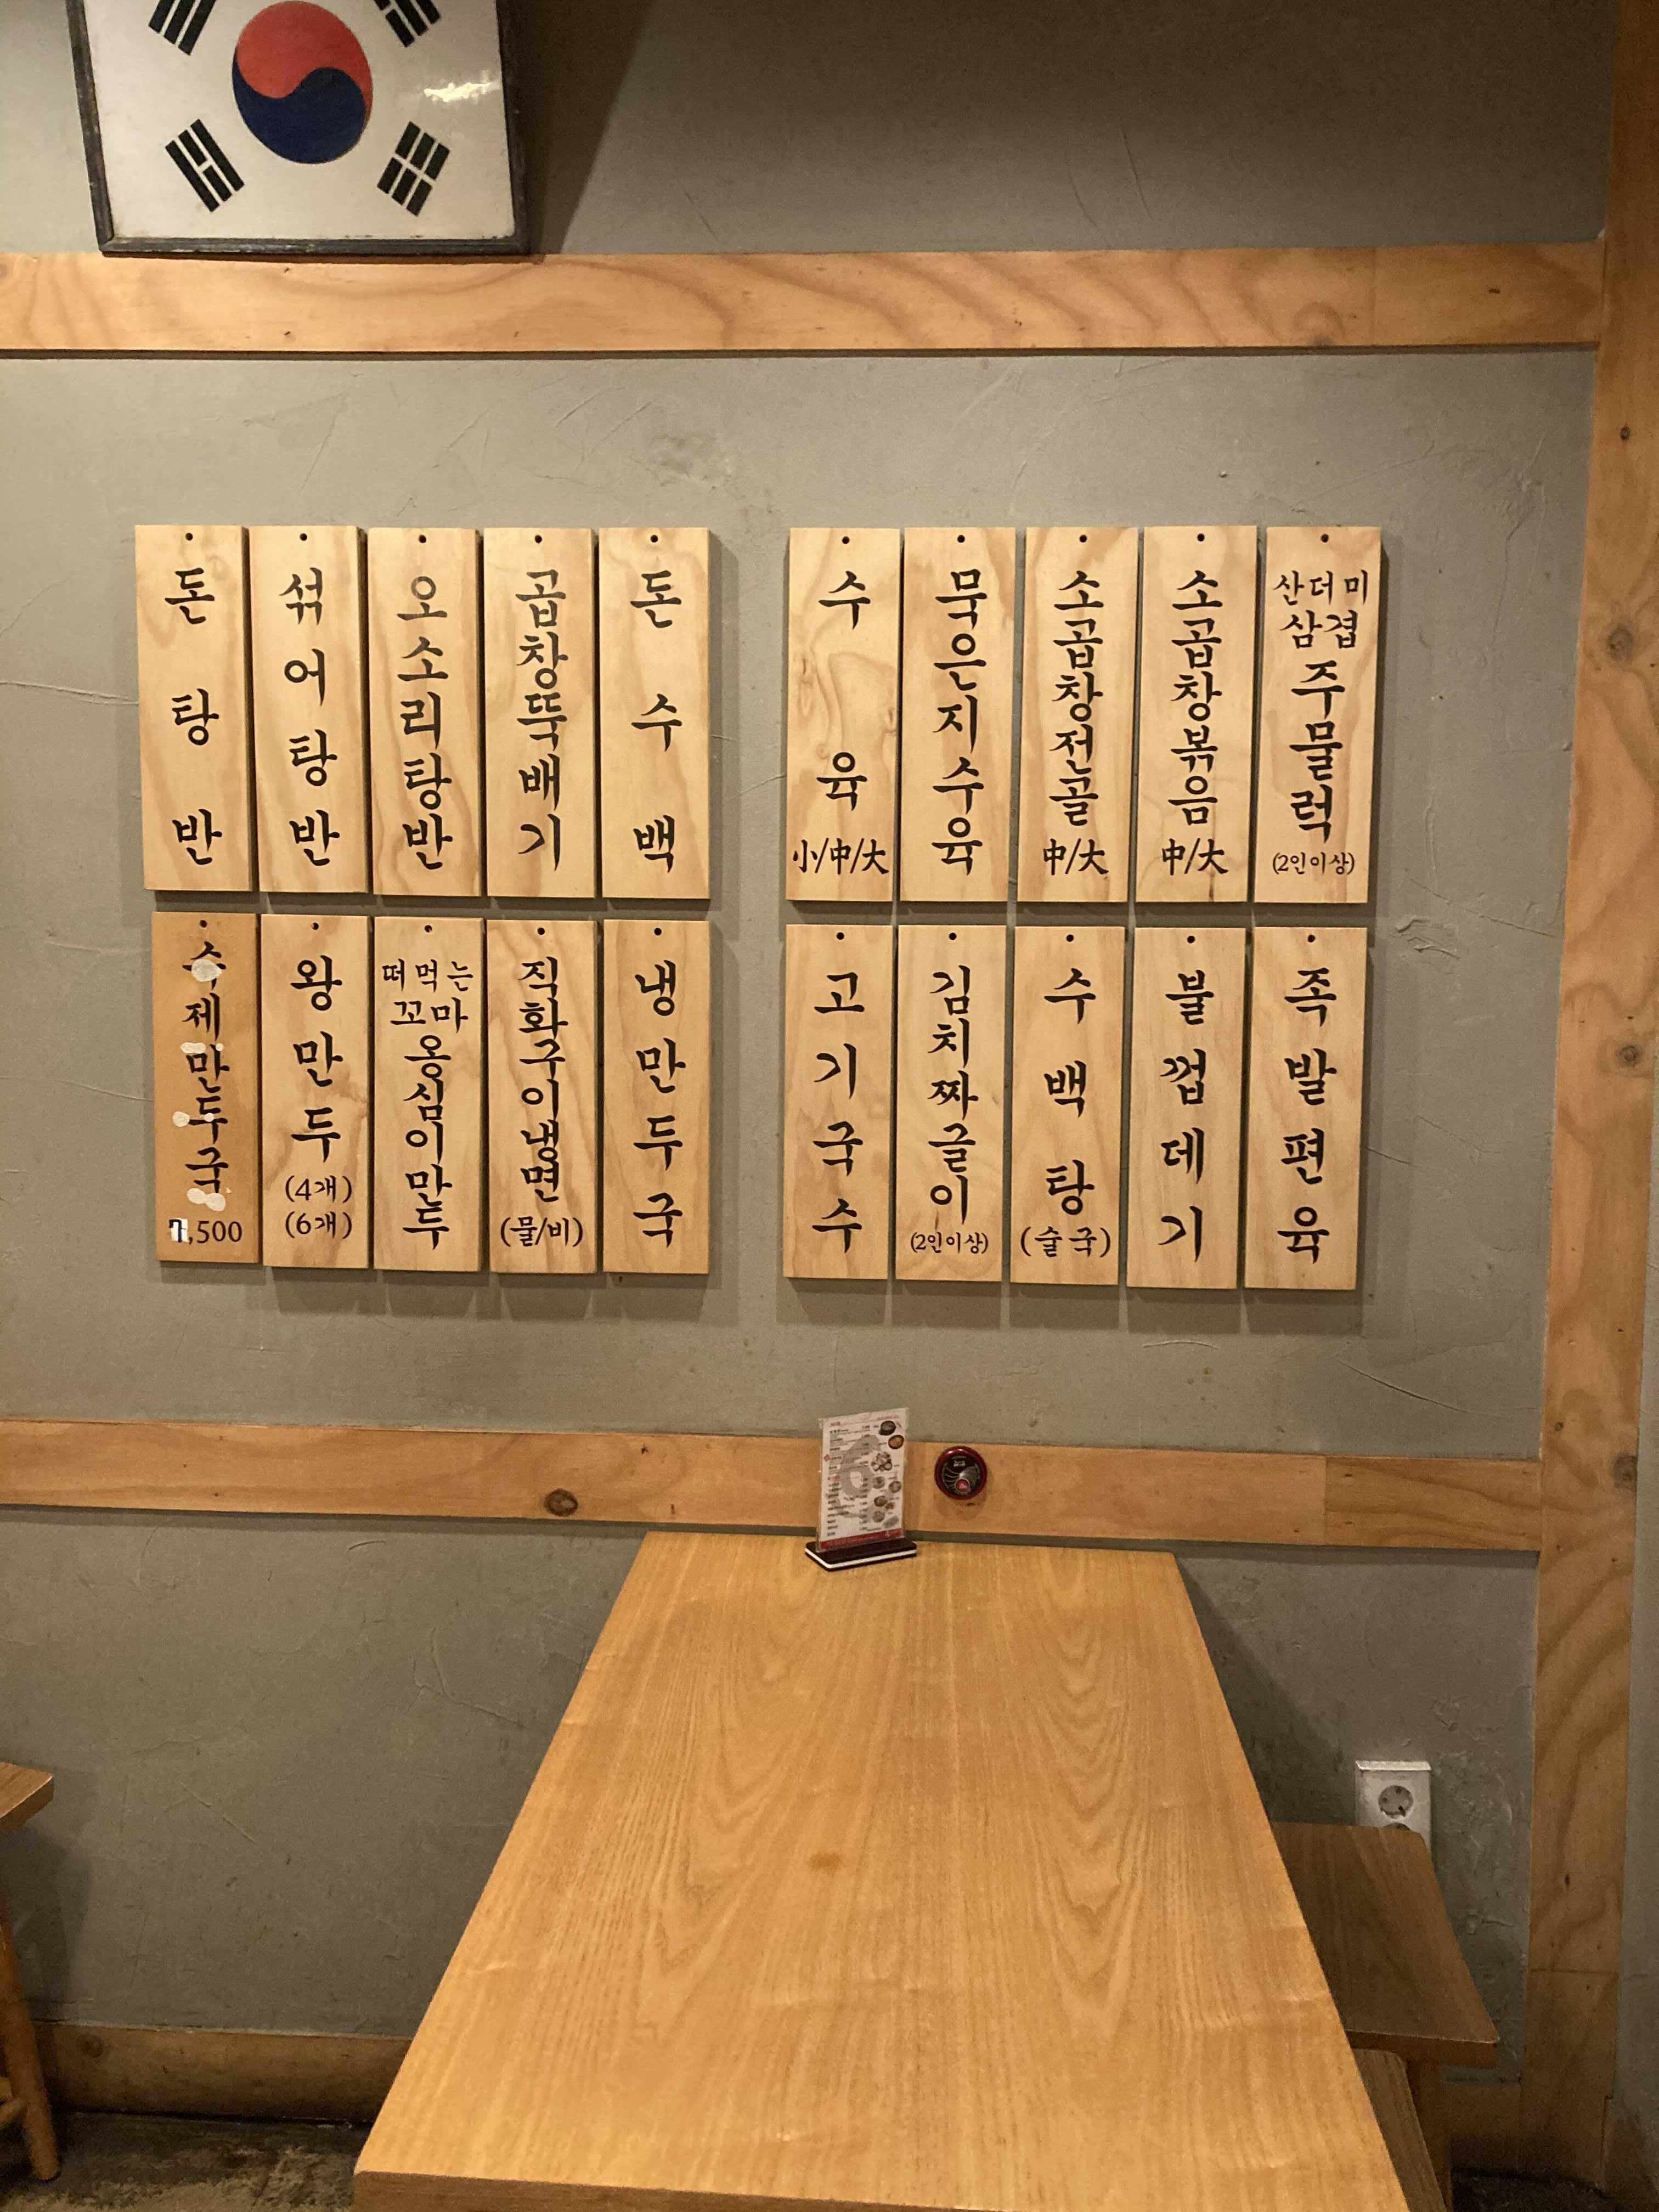 돈탕반
섞어탕반
오소리탕반
곱창뚝배기
돈수백
수육
小/中/大
묵은지수육
소곱창전골
中/大
소곱창볶음
中/大
산더미
삼겹
주물럭
(2인이상)
수제만두국
7,500
왕만두
(4개)
(6개)
떠먹는
꼬마
옹심이만두
직화구이냉면
(물/비)
냉만두국
고기국수
김치짜글이
(2인이상)
수백탕
(술국)
불껍데기
족발편육